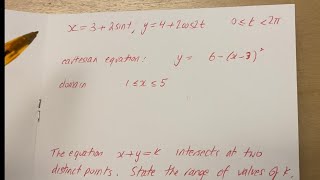 x = 3 + 2sint, y = 4 + 2cos2t 0 ≤ t < 2π
cartesian equation: y = 6 - (x-3)²
domain 1 ≤ x ≤ 5
The equation x+y=k intersects at two
distinct points. State the range of values of k.